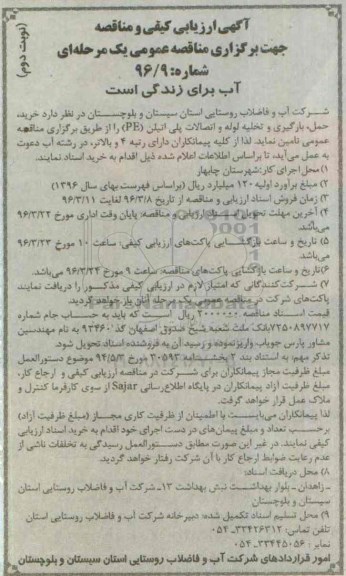 آگهی ارزیابی کیفی و مناقصه
(نوبت دوم)
جهت برگزاری مناقصه عمومی یک مرحله‌ای
شماره: ۹۶/۹
آب برای زندگی است
شرکت آب و فاضلاب روستایی استان سیستان و بلوچستان در نظر دارد خرید،
حمل، بارگیری و تخلیه لوله و اتصالات پلی اتیلن (PE) را از طریق برگزاری مناقصه
عمومی تامین نماید. لذا از کلیه پیمانکاران دارای رتبه ۴ و بالاتر، در رشته آب دعوت
به عمل می‌آید، تا براساس اطلاعات اعلام شده ذیل اقدام به خرید اسناد نمایند.
۱) محل اجرای کار: شهرستان چابهار
۲) مبلغ برآورد اولیه ۱۲۰ میلیارد ریال (براساس فهرست بهای سال ۱۳۹۶)
۳) زمان فروش اسناد ارزیابی و مناقصه از تاریخ ۹۶/۳/۸ لغایت ۹۶/۳/۱۱
۴) آخرین مهلت تحویل اسناد ارزیابی و مناقصه: پایان وقت اداری مورخ ۹۶/۳/۲۲
می‌باشد.
۵) تاریخ و ساعت بازگشایی پاکت‌های ارزیابی کیفی: ساعت ۱۰ مورخ ۹۶/۳/۲۳
می‌باشد.
۶) تاریخ و ساعت بازگشایی پاکت‌های مناقصه: ساعت ۹ مورخ ۹۶/۳/۲۴ می‌باشد.
۷) شرکت‌کنندگانی که امتیاز لازم در ارزیابی کیفی مذکور را دریافت نمایند
پاکت‌های شرکت در مناقصه عمومی یک مرحله آنان باز خواهد گردید.
قیمت اسناد مناقصه ۲۰۰۰۰۰۰ ریال است که باید به حساب جام شماره
۷۲۵۰۸۹۷۷۱۷ بانک ملت شعبه شیخ صدوق اصفهان کد ۹۳۴۶۰ به نام مهندسین
مشاور پارس جویاب واریز نموده و رسید آن به فروشنده اسناد تحویل شود.
تذکر مهم: به استناد بند ۲ بخشنامه ۳۰۵۹۳ مورخ ۹۴/۵/۳ موضوع دستورالعمل
مبلغ ظرفیت مجاز پیمانکاران برای شرکت در مناقصه ارزیابی کیفی و ارجاع کار،
مبلغ ظرفیت آزاد پیمانکاران در پایگاه اطلاع‌رسانی Sajar از سوی کارفرما کنترل و
ملاک عمل قرار خواهد گرفت.
لذا پیمانکاران می‌بایست با اطمینان از ظرفیت کاری مجاز (مبلغ ظرفیت آزاد)
برحسب تعداد و مبلغ پیمان‌های در دست اجرای خود اقدام به خرید اسناد ارزیابی
کیفی نمایند. در غیر این صورت مطابق دستورالعمل رسیدگی به تخلفات ناشی از
عدم رعایت ضوابط ارجاع کار با آن شرکت رفتار خواهد گردید.
۸) محل دریافت اسناد:
ـ زاهدان ـ بلوار بهداشت نبش بهداشت ۱۳ـ شرکت آب و فاضلاب روستایی استان
سیستان و بلوچستان
۹) محل تسلیم اسناد تکمیل شده: دبیرخانه شرکت آب و فاضلاب روستایی استان
تلفن تماس: ۳۳۴۲۶۳۱۲ـ ۰۵۴
نمابر: ۳۳۴۴۵۰۵۶ـ ۰۵۴
امور قراردادهای شرکت آب و فاضلاب روستایی استان سیستان و بلوچستان